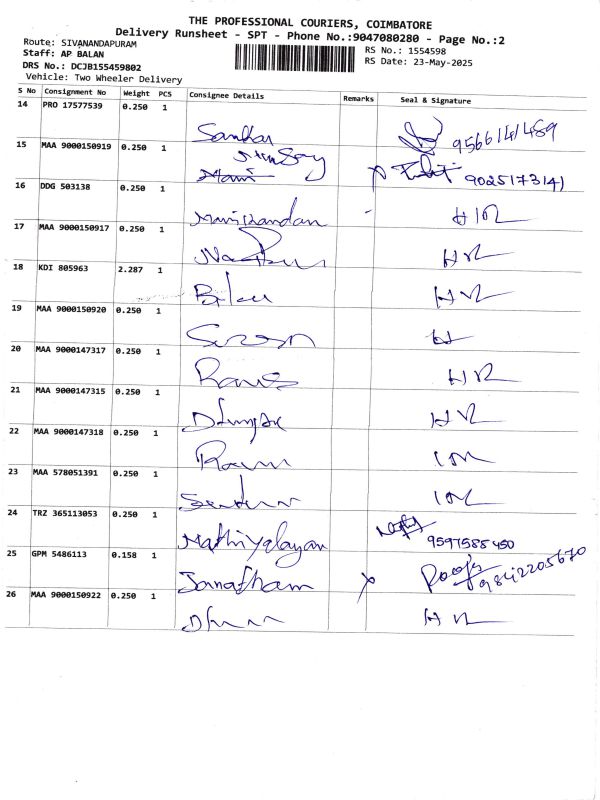 THE PROFESSIONAL COURIERS, COIMBATORE
Delivery Runsheet - SPT - Phone No.:9047080280 - Page No.:2
Route: SIVANANDAPURAM
Staff: AP BALAN
DRS No.: DCJB155459802
Vehicle: Two Wheeler Delivery
RS No.: 1554598
RS Date: 23-May-2025
S No Consignment No Weight PCS Consignee Details Remarks Seal & Signature
14 PRO 17577539 0.250 1
Sankar 9566141489
15 MAA 9000150919 0.250 1
Mani 9025173141
16 DDG 503138 0.250 1
Manikandan - H R
17 MAA 9000150917 0.250 1
H R
18 KDI 805963 2.287 1
H R
19 MAA 9000150920 0.250 1
H
20 MAA 9000147317 0.250 1
H R
21 MAA 9000147315 0.250 1
H R
22 MAA 9000147318 0.250 1
23 MAA 578051391 0.250 1
24 TRZ 365113053 0.250 1
Mathiyalagan 9597588450
25 GPM 5486113 0.158 1
Janatham x Pooja 9842205670
26 MAA 9000150922 0.250 1
H R